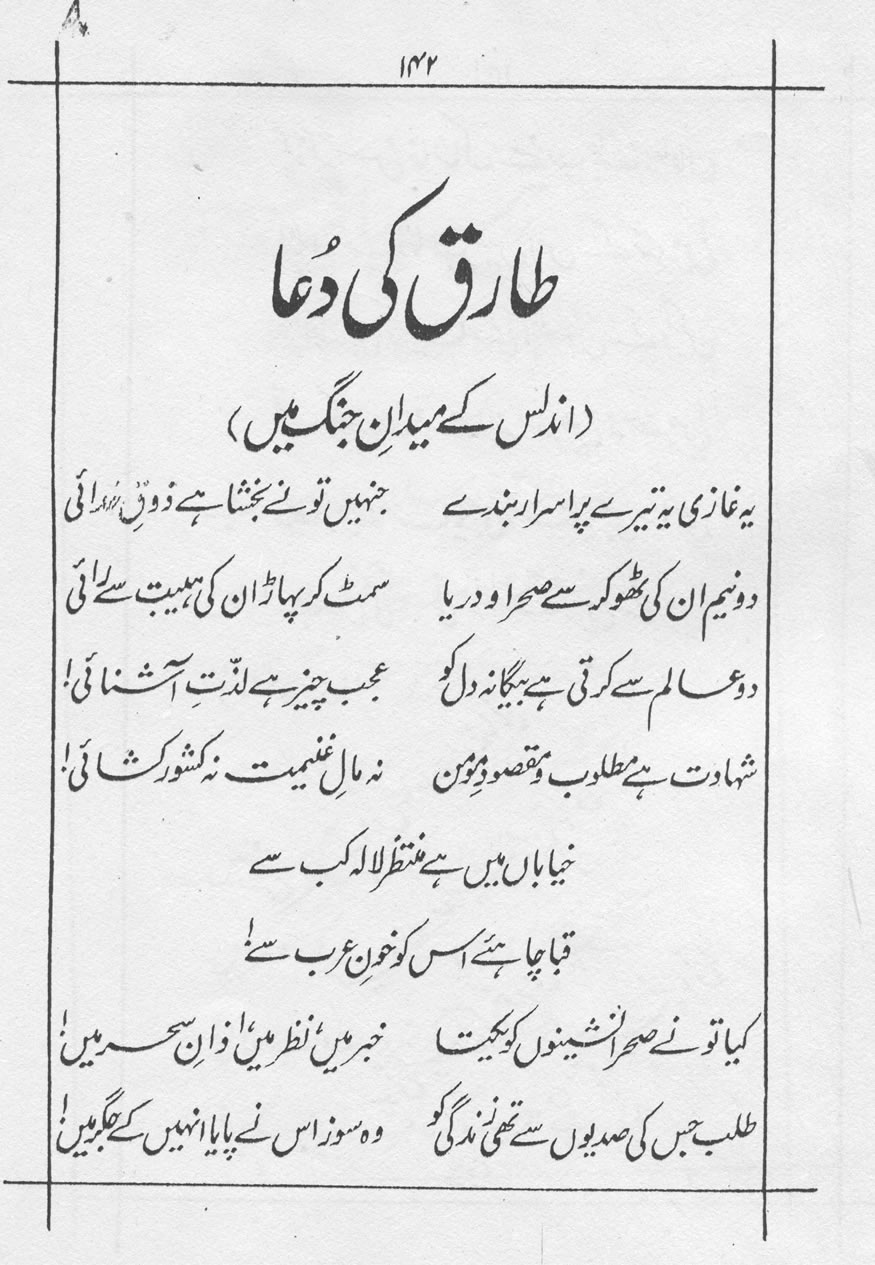 ۱۴۲
طارق کی دُعا
(اندلس کے میدانِ جنگ میں)
یہ غازی یہ تیرے پراسرار بندے جنہیں تو نے بخشا ہے ذوقِ خدائی
دونیم ان کی ٹھوکر سے صحرا و دریا سمٹ کر پہاڑ ان کی ہیبت سے رائی
دو عالم سے کرتی ہے بیگانہ دل کو عجب چیز ہے لذّتِ آشنائی!
شہادت ہے مطلوب و مقصودِ مومن نہ مالِ غنیمت نہ کشور کشائی!
خیاباں میں ہے منتظر لالہ کب سے
قبا چاہئے اس کو خونِ عرب سے!
کیا تو نے صحرا نشینوں کو یکتا خبر میں، نظر میں، اذانِ سحر میں!
طلب جس کی صدیوں سے تھی زندگی کو وہ سوز اس نے پایا انہیں کے جگر میں!